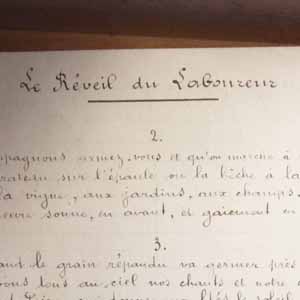 Le Réveil du Laboureur
2.
pagnons armez-vous et qu'on marche à
rateau sur l'épaule ou la bêche à la
la vigne, aux jardins, aux champs,
sonne, en avant, et gaiement en
3.
le grain répandu va germer près
tous au ciel nos chants et notre